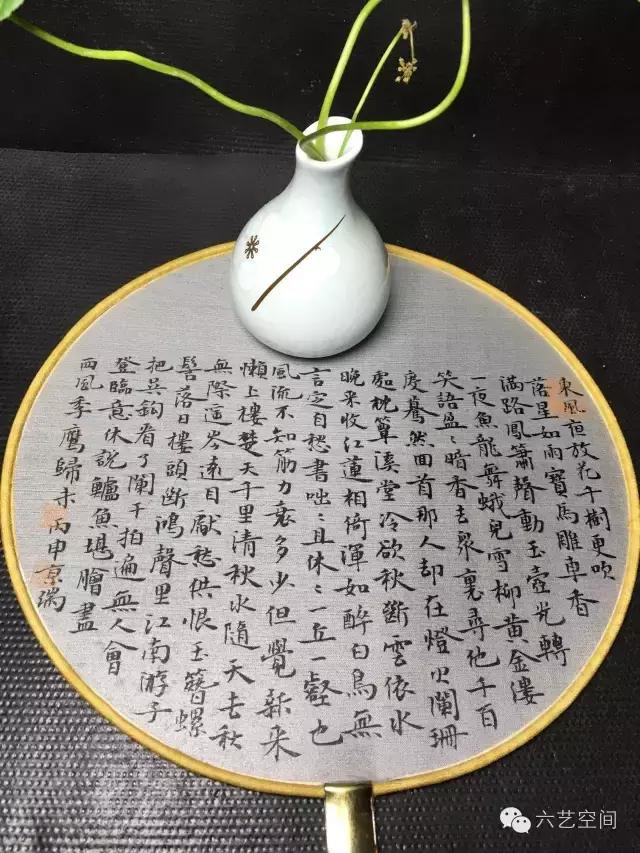 東風夜放花千樹更吹
落星如雨寶馬雕車香
滿路鳳簫聲動玉壺光轉
一夜魚龍舞蛾兒雪柳黃金縷
笑語盈々暗香去衆裏尋他千百
度驀然回首那人却在燈火闌珊
處枕簟溪堂冷欲秋斷雲依水
晚來收紅蓮相倚渾如醉白鳥無
言定自愁書咄々且休々一丘一壑也
風流不知筋力衰多少但覺新來
懶上樓楚天千里清秋水隨天去秋
無際遥岑遠目獻愁供恨玉簪螺
髻落日樓頭斷鴻聲里江南游子
把吳鈎看了闌干拍遍無人會
登臨意休說鱸魚堪膾盡
西風季鷹歸未 丙申京瑞
六艺空间